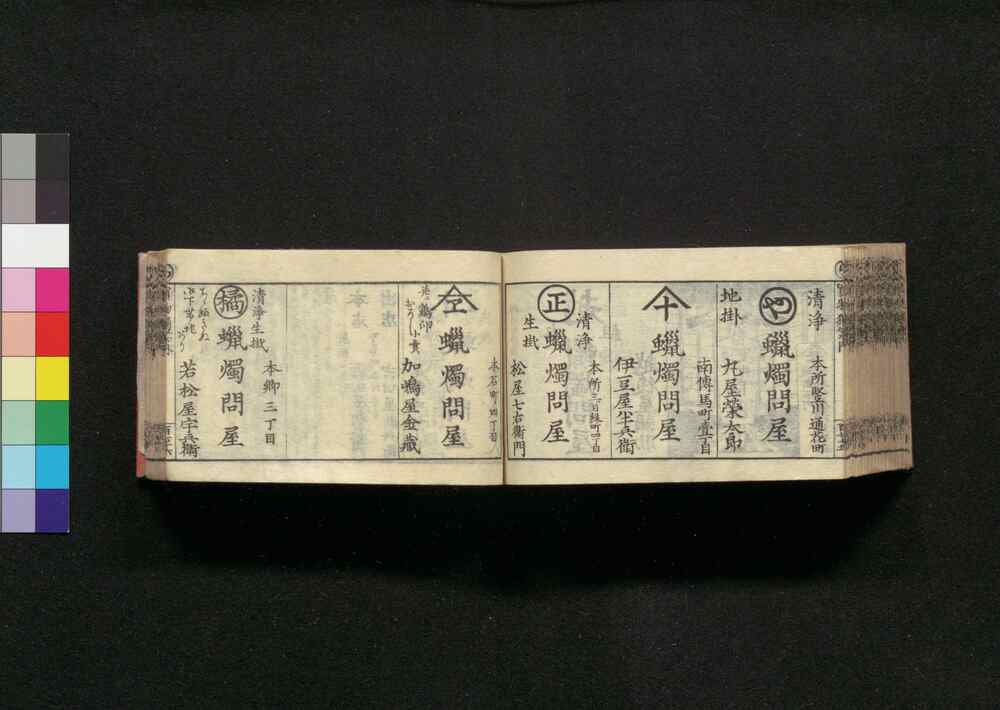 清浄
本所竪川通花町
蝋燭問屋
地掛
丸屋榮太郎
南傳馬町壹丁目
蝋燭問屋
伊豆屋半兵衛
清浄
本所三ツ目緑町四丁目
正
蝋燭問屋
生掛
松屋七右衛門
本石町四丁目
蝋燭問屋
加嶋屋金蔵
清浄生掛
本郷三丁目
橘
蝋燭問屋
若松屋宇兵衛